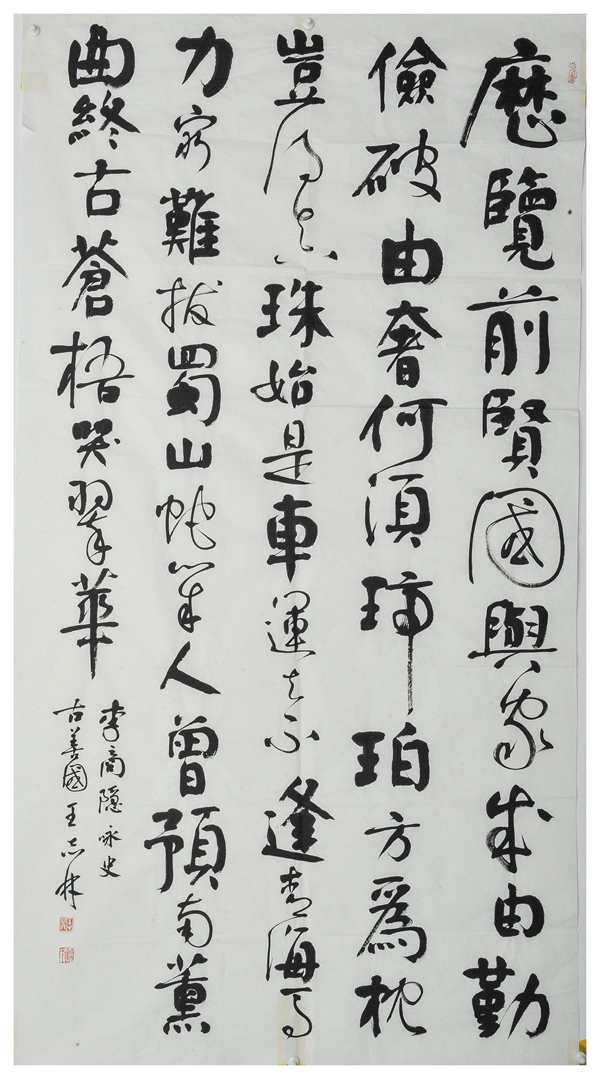 歷覽前賢國與家成由勤
儉破由奢何須琥珀方爲枕
豈得真珠始是車運去不逢青海馬
力窮難拔蜀山蛇幾人曾預南薰
曲終古蒼梧哭翠華
李商隐咏史
古善國王志林